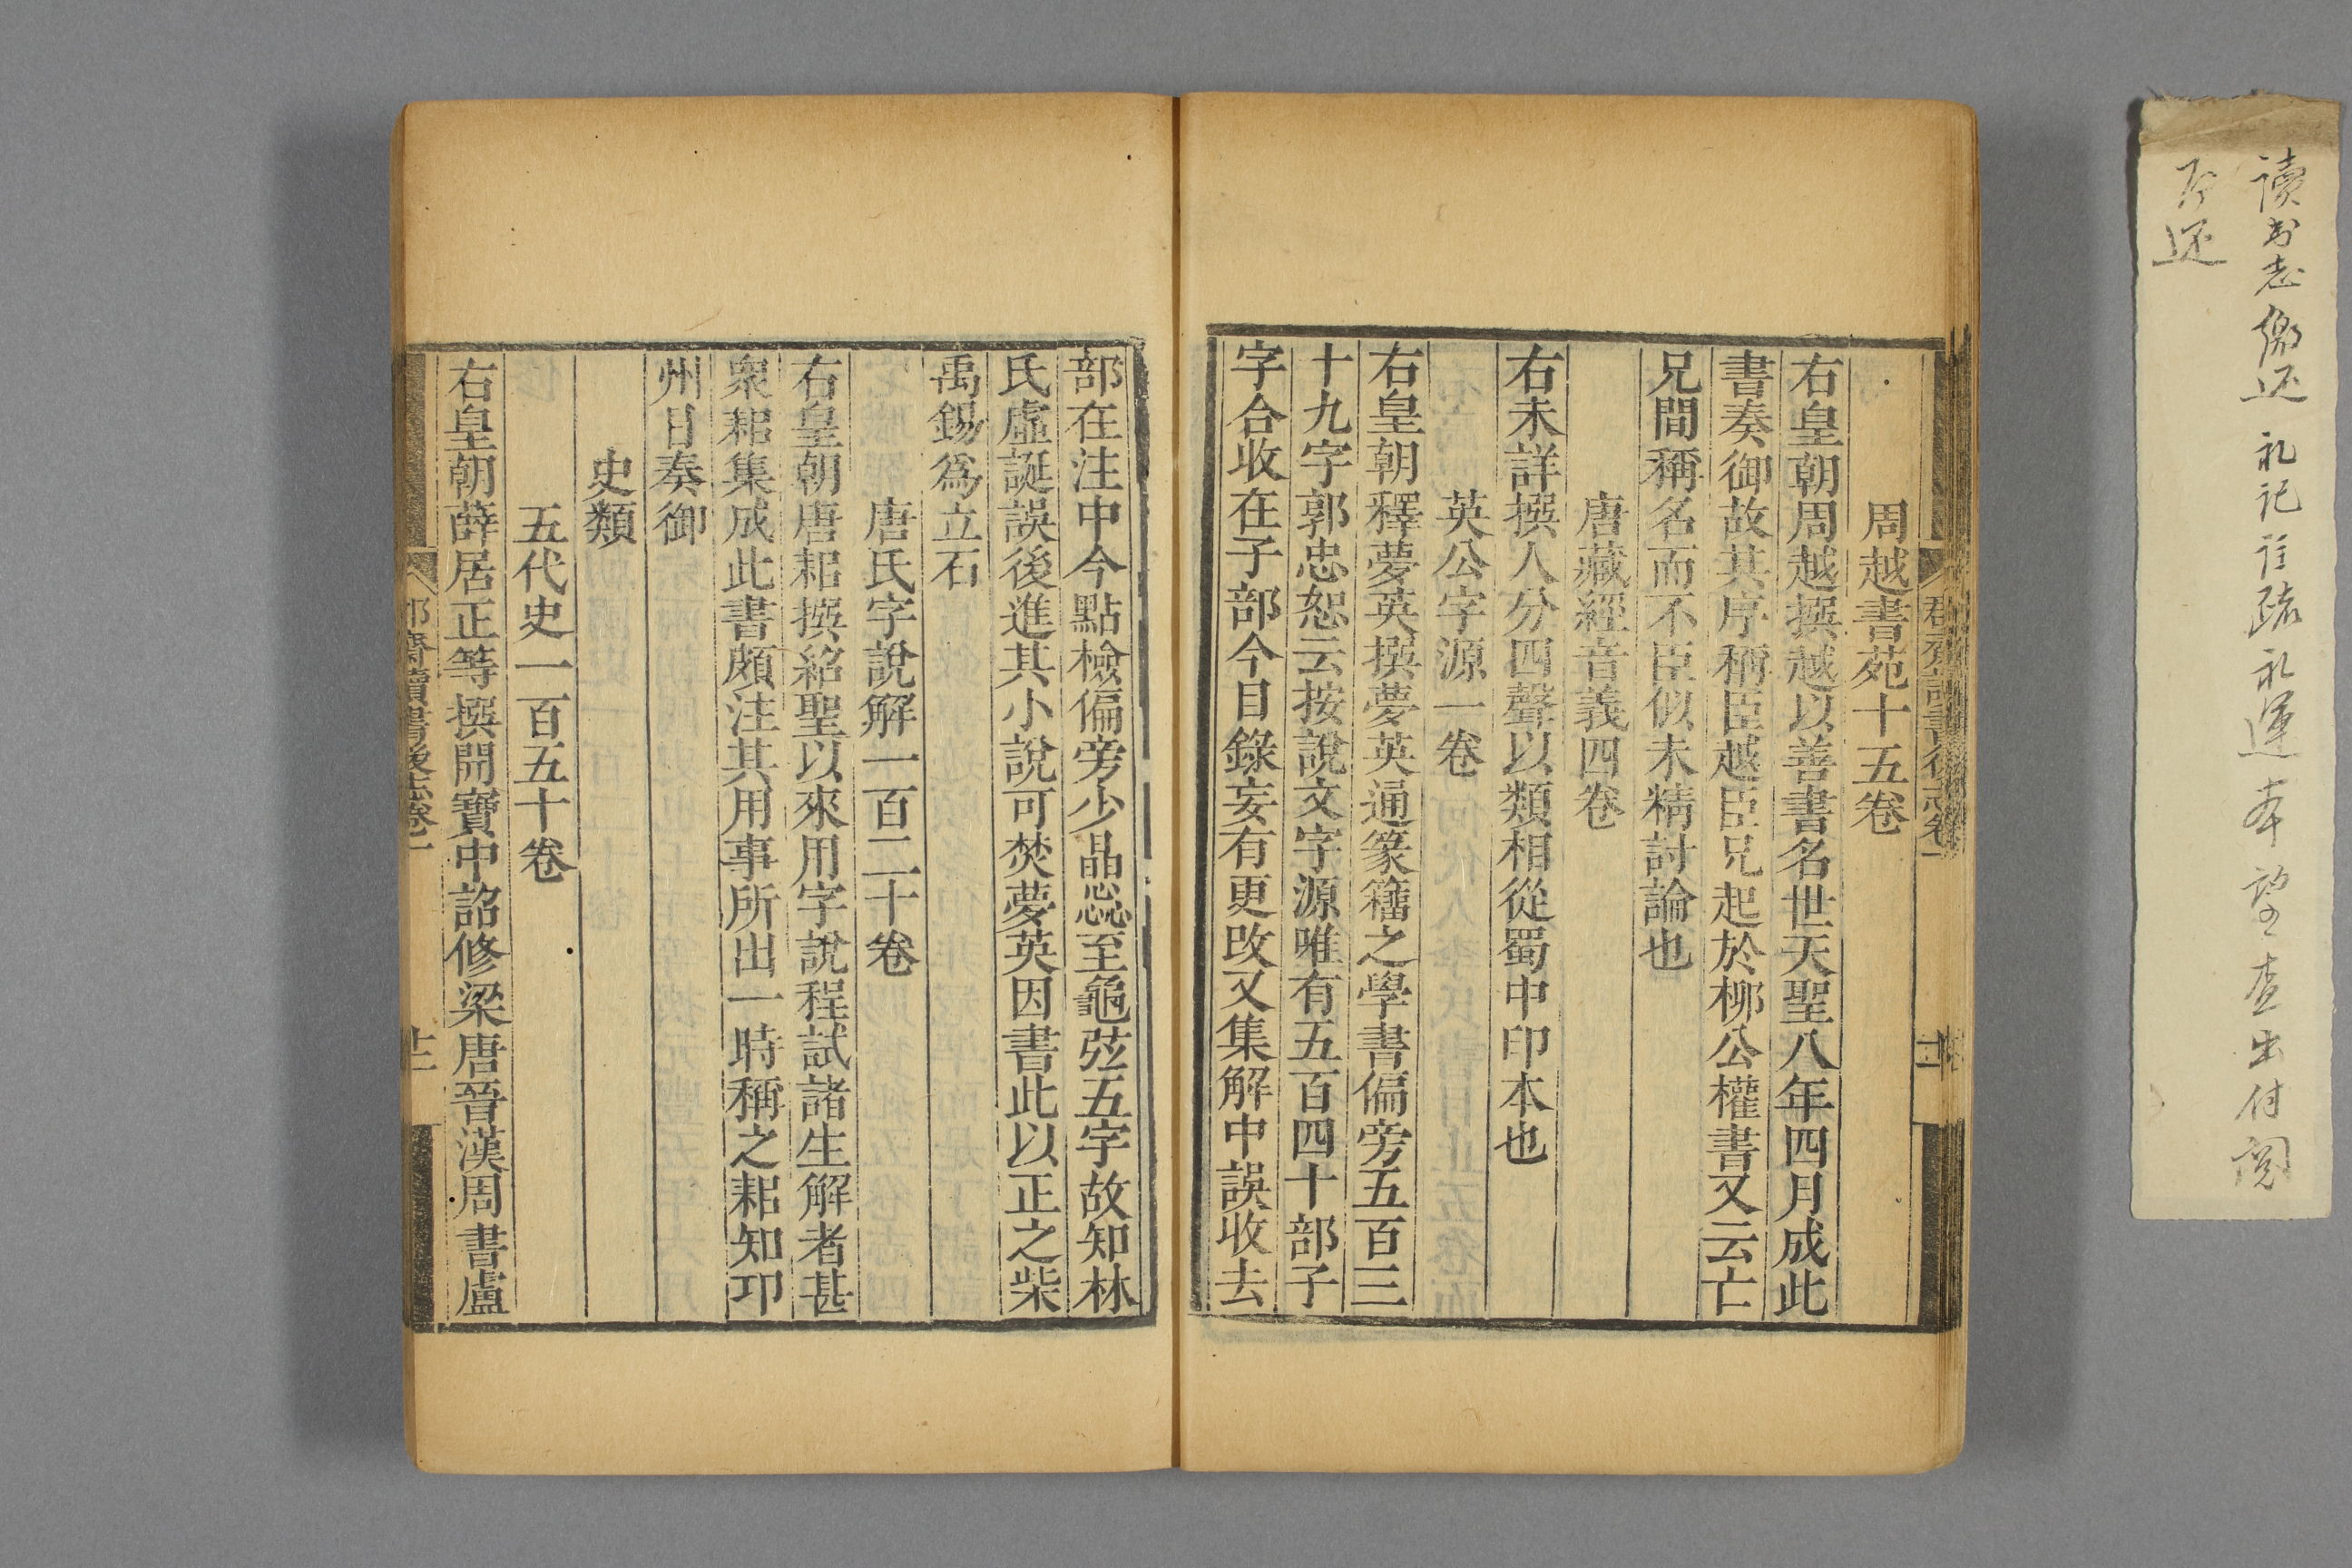 周越書苑十五卷
右皇朝周越撰越以善書名世天聖八年四月成此
書奏御故其序稱臣越臣兄起於柳公權書又云亡
兄間稱名而不臣似未精討論也
唐藏經音義四卷
右未詳撰人分四聲以類相從蜀中印本也
英公字源一卷
右皇朝釋夢英撰夢英通篆籀之學書偏旁五百三
十九字郭忠恕云按說文字源唯有五百四十部子
字合收在子部今目錄妄有更改又集解中誤收去
部在注中今點檢偏旁少晶惢至龜弦五字故知林
氏虛誕誤後進其小說可焚夢英因書此以正之柴
禹錫爲立石
唐氏字說解一百二十卷
右皇朝唐耜撰紹聖以來用字說程試諸生解者甚
衆耜集成此書頗注其用事所出一時稱之耜知邛
州日奏御
史類
五代史一百五十卷
右皇朝薛居正等撰開寶中詔修梁唐晉漢周書盧
郡齋讀書後志卷一
讀书志 还 礼记註疏礼運本 望查出付阅
还